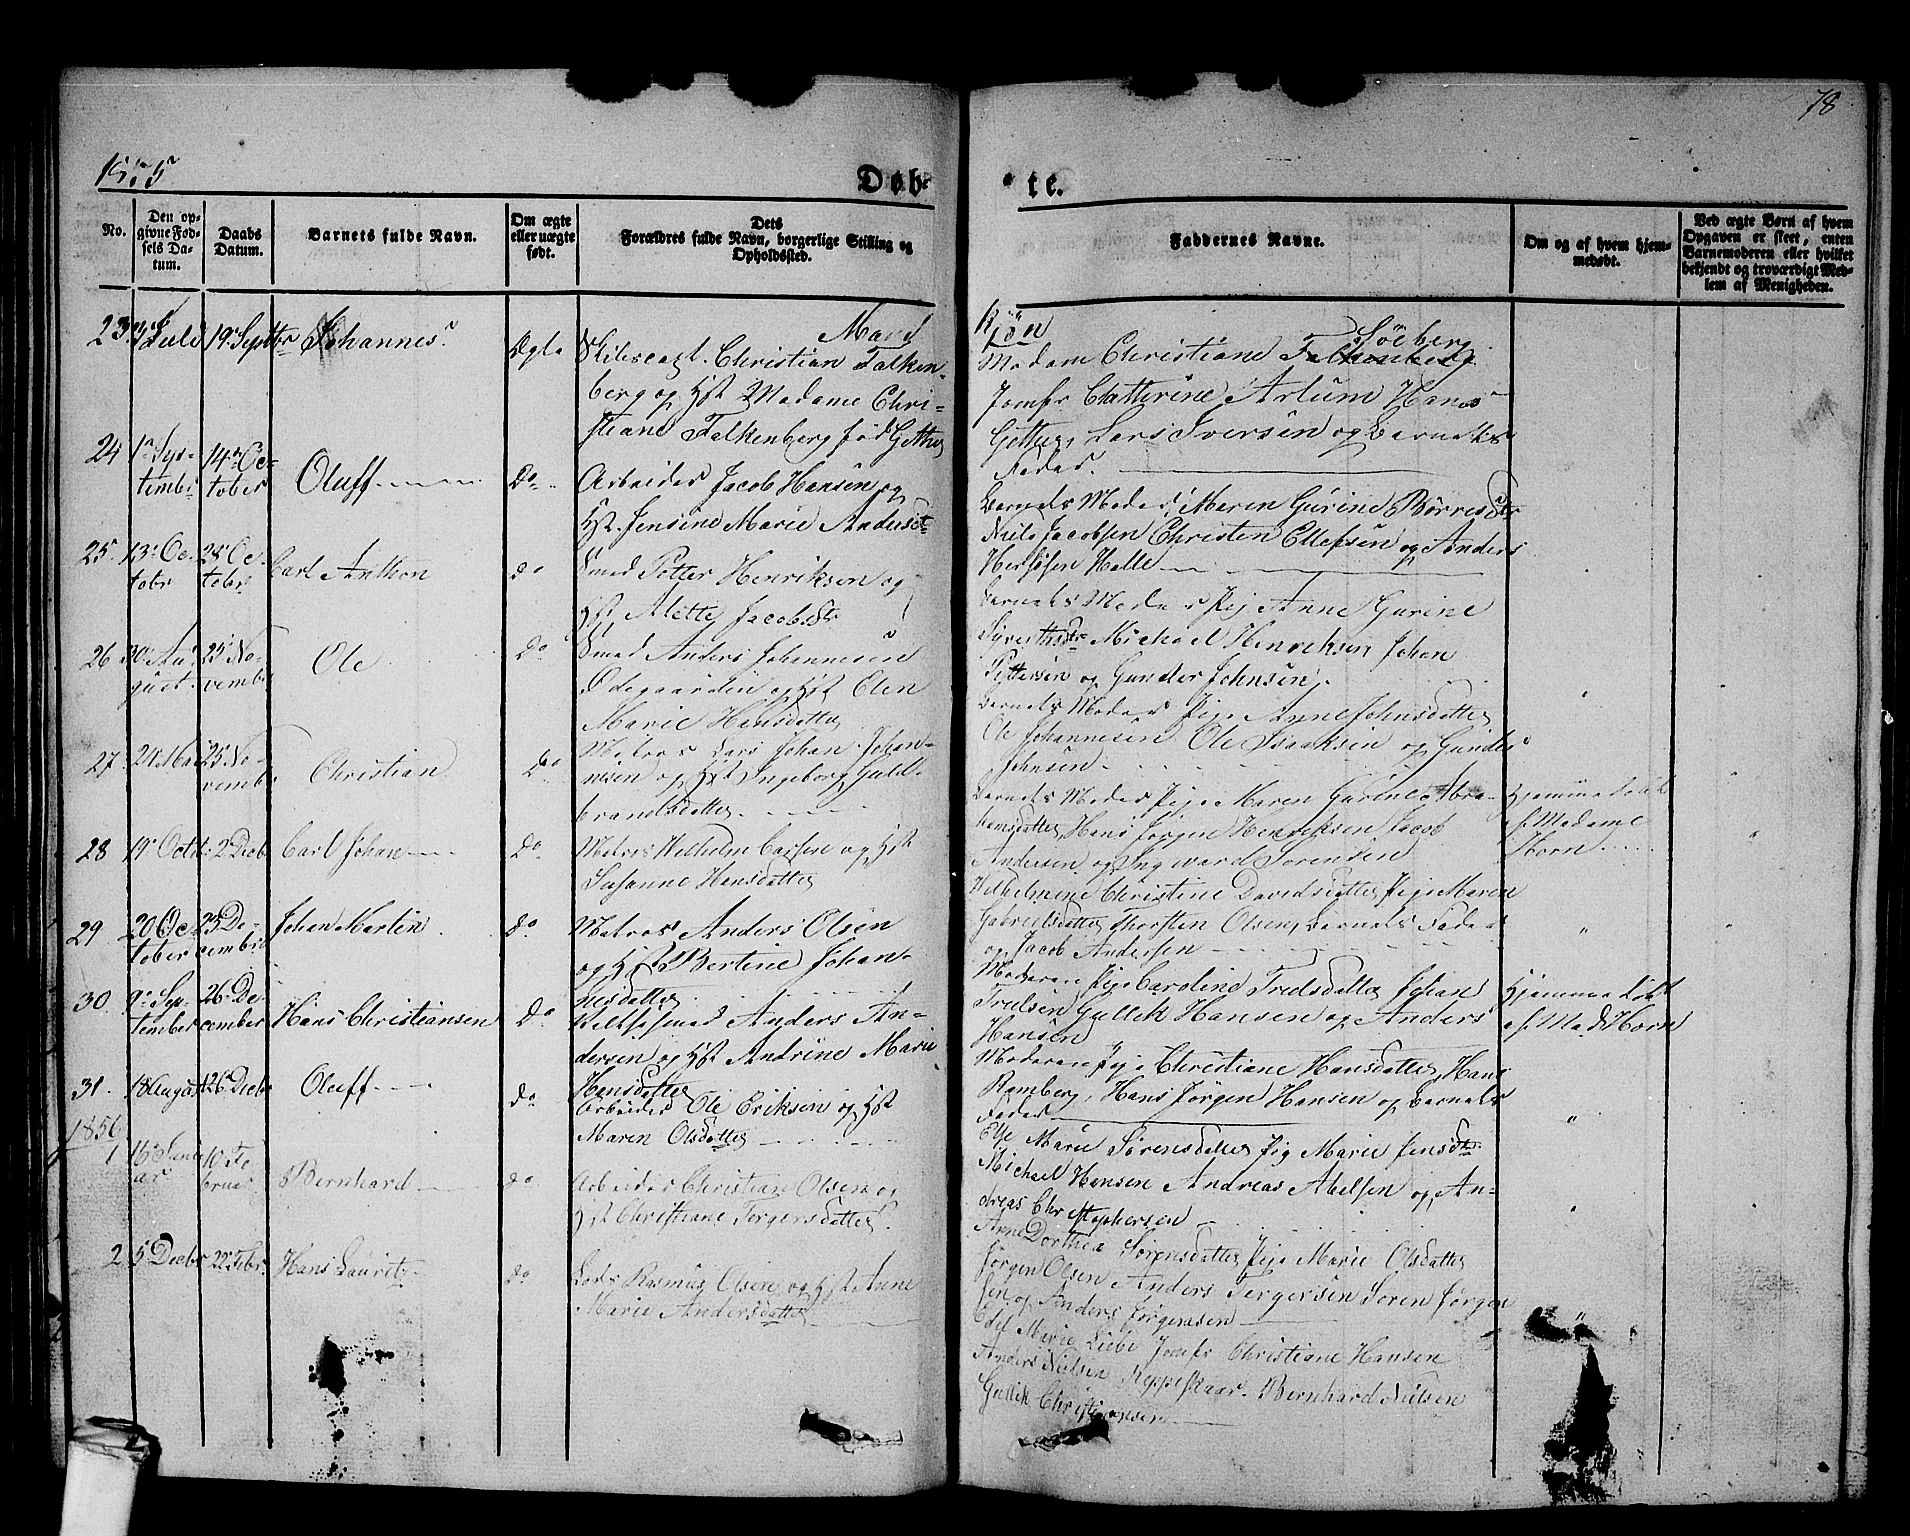 78
1855
Døb-
te.
No.
Den op-
givne Fød-
sels Da-
tum.
Daabs
Datum.
Barnets fulde Navn.
Om ægte
eller uægte
født.
Dets
Forældres fulde Navn, borgerlige Stilling og
Opholdssted.
Faddernes Navne.
Om og af hvem hjem-
medøbt.
Ved ægte Børn af hvem
Opgaven er skeet, enten
Barnemoderen eller hvilket
bekjendt og troværdigt Med-
lem af Menigheden.
Mand
Kjøn
23 3 Juli 19 Septbr Johannes Ægte
Christian Falken-
berg og Hst Madame Chri-
stiane Falkenberg fød
Madam Christiane Søeberg
Jomfr Cathrine Hans
Lars Iversen og Barnets
Fader.
24 1 Sep-
tembr 14 Oc-
tober Oluff Do
Arbeider Jacob Hansen og
Hst. Jensine Marie Andersdt
Barnets Moder, Maren Gurine Børresdtr
Niels Jacobsen Christen Ellefsen og Anders
Halle
25 13 Oc-
tobr 28 Oc-
tober Carl Anthon do
Smed Petter Henriksen og
Hst Alette Jacobsdtr
Barnets Moder Pige Anne Gurine
Michael Henriksen Johan
Pettersen og Gunder Johnsen.
26 30 Au-
gust 25 No-
vembr Ole Do
Smed Anders Johannesen
Ødegaarden og Hst Elen
Marie Hansdatter
Barnets Moder Pige Anne Johnsdatter
Ole Johannesen Ole Isaaksen og Gunder
Johnsen
27 24 Mai 25 No-
vembr Christian Do
Matros Lars Johan Johan-
nesen og Hst Ingeborg Guld-
brandsdatter
Barnets Moder Pige Maren Gurine Abra-
hamsdatter, Hans Jørgen Henriksen Jacob
Andersen og Ingward Sørensen
Hjemmedøbt
af Madame
Horn
28 19 Octbr 2 Decbr Carl Johan Do
Matros Wilhelm Carlsen og Hst
Susanne Hansdatter
Wilhelmine Christine Davidsdatter Pige Maren
Gabrielsdatter Thorsten Olsen, Barnets Fader
og Jacob Andersen
29 20 Oc-
tober 25 De-
cembr Johan Martin do
Matros Anders Olsen
og Hst Bertine Johan-
nesdatter
Moderen Pige Caroline Truelsdatter Johan
Truelsen Gullik Hansen og Anders
Hansen
30 9 Sep-
tember 26 De-
cember Hans Christiansen Do
Anders An-
dersen og Hst Andrine Marie
Hansdatter
Moderen Pige Christiane Hansdatter, Hans
Ramberg, Hans Jørgen Hansen og Barnets
Fader
Hjemmedøbt
af Mad. Horn
31 18 August 26 Decbr Oluff Do
Arbeider Ole Eriksen og Hst
Maren Olsdatter
Else Marie Sørensdatter Pig Marie Jensdtr
Michael Hansen Andreas Abelsen og An-
dreas Christophersen
1856
1 16 Janu-
ar 10 Fe-
bruar Bernhard do
Arbeider Christian Olsen og
Hst Christiane Torgersdatter
Anne Dorthea Sørensdatter Pige Marie Olsdatter
Jørgen Olsen Anders Torgersen Søren Jørgen-
sen og Anders Jørgensen
2 5 Decbr 22 Febr. Hans Lauritz do
Lods Rasmus Olsen og Hst Anne
Marie Andersdatter
Edel Marie Liebe Jomfr Christiane Hansen
Anders Nielsen Bernhard Nielsen
Gullik Christiansen